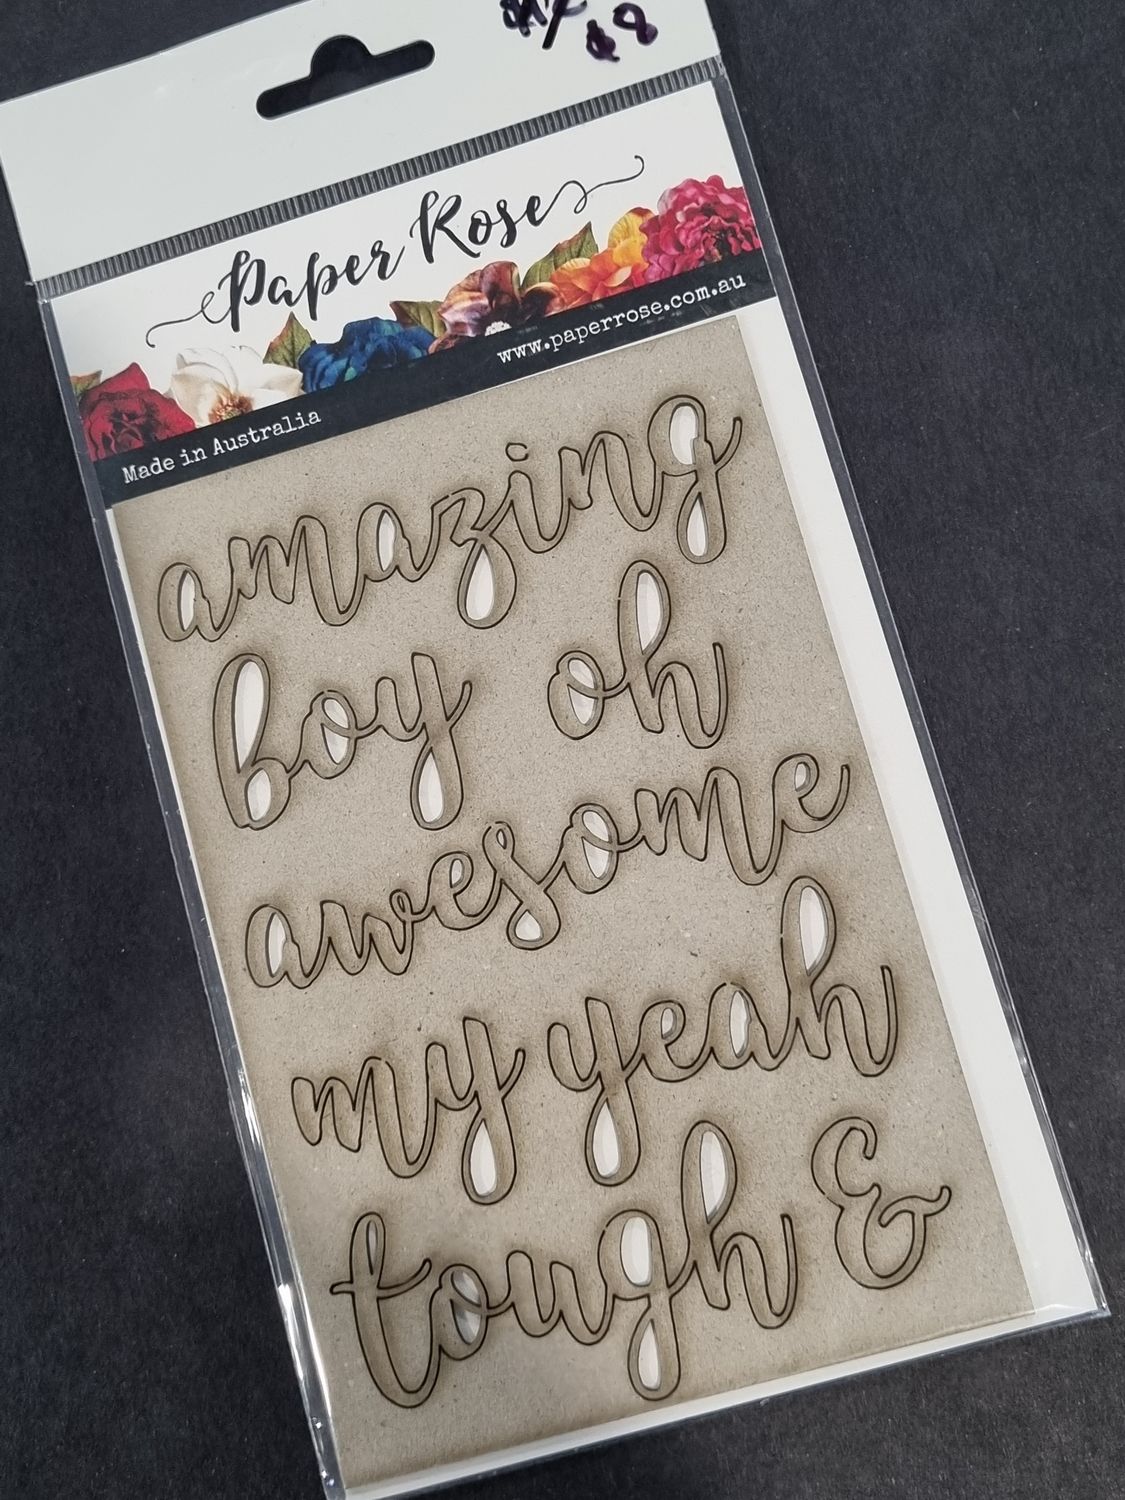 $8
Paper Rose
www.paperrose.com.au
Made in Australia
amazing
boy oh
awesome
my yeah
tough &